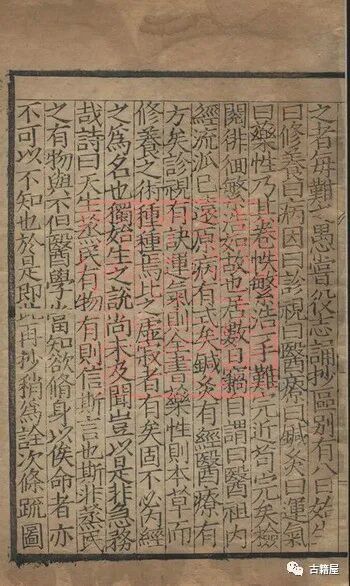 之者毎難之愚嘗役志謂抄區別有八曰始生
曰修養曰病因曰診視曰醫療曰鍼灸曰運氣
曰藥性乃止卷帙繁浩一手難完近苟完矣檢
閱徘徊繁浩如故也居數日竊自謂曰醫祖内
經流派已遠原病有式矣鍼灸有經醫療有
方矣診視有訣運氣則全書藥性則本草而
修養之術種種焉比之虛寂者有矣固不必經
之爲名也獨始生之說尚未及聞豈以是非急務
哉詩曰天生烝民有物有則信斯言也斯非烝民
之有物與不但醫學當知欲脩身以俟命者亦
不可以不知也於是即再抄稍爲詮次條疏圖
古籍屋